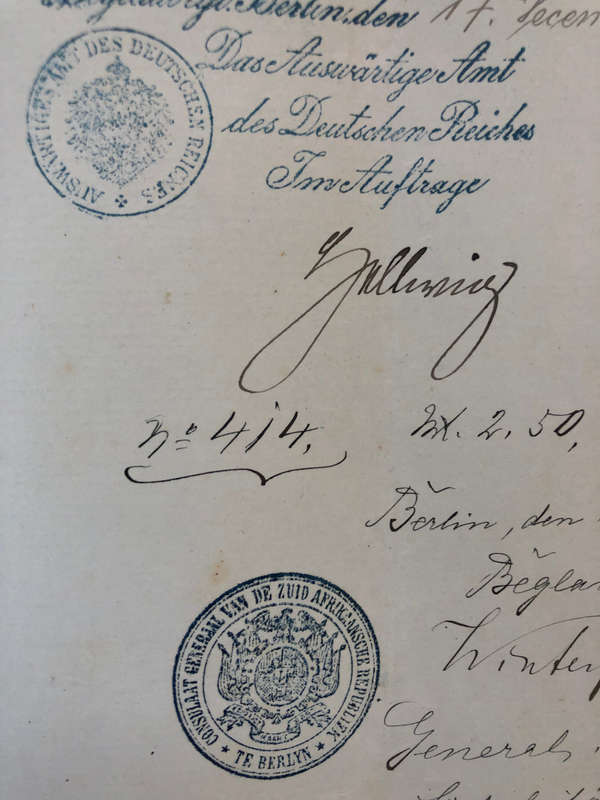 Berlin, den 17.
AUSWÄRTIGES AMT DES DEUTSCHEN REICHES
Das Auswärtige Amt
des Deutschen Reiches
Im Auftrage
Hellwig
No 414.
M. 2. 50,
Berlin, den
Begla
CONSULAAT GENERAAL VAN DE ZUID AFRIKAANSCHE REPUBLIEK
TE BERLYN
Winter
General